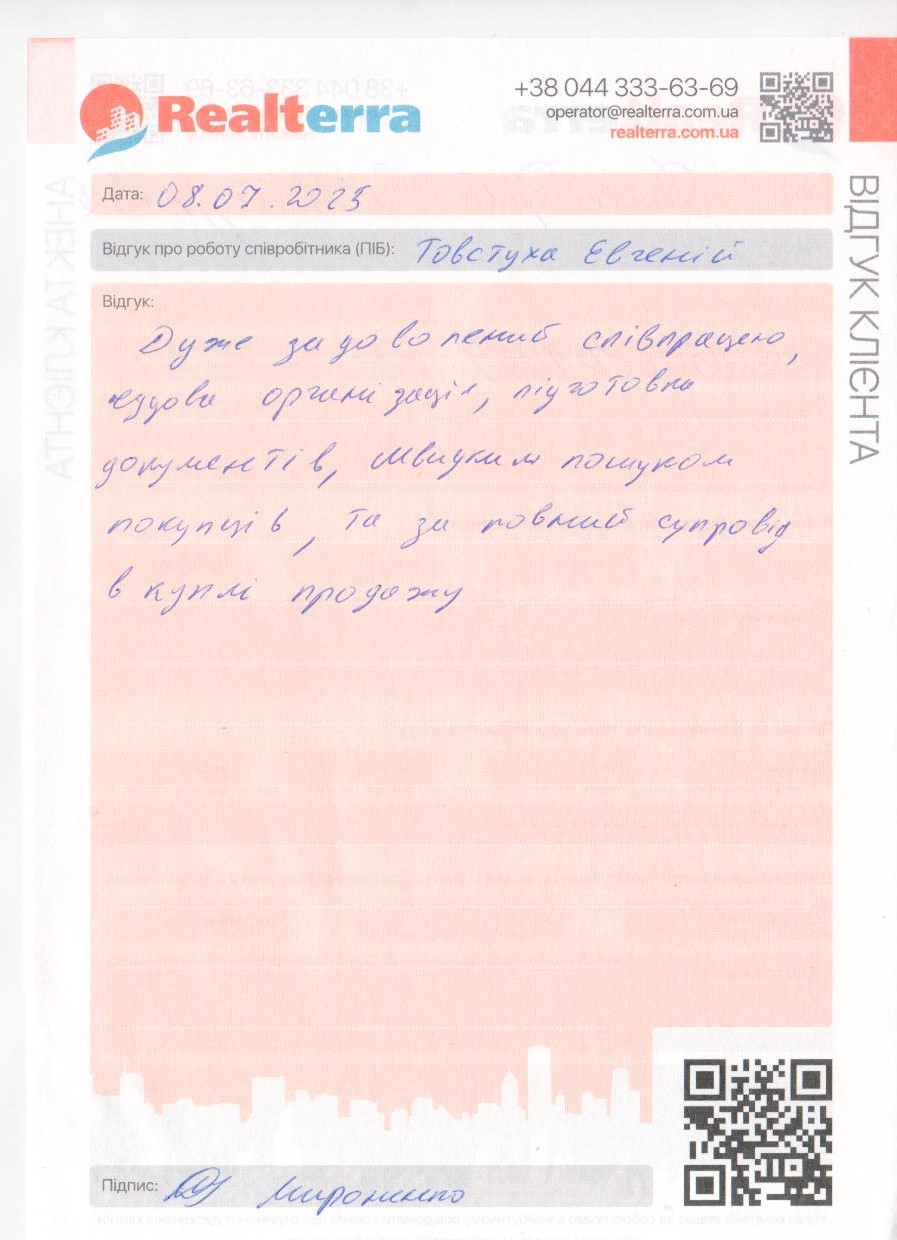 Realterra
+38 044 333-63-69
operator@realterra.com.ua
realterra.com.ua
ВІДГУК КЛІЄНТА
АНКЕТА КЛІЄНТА
Дата: 08.07.2025
Відгук про роботу співробітника (ПІБ): Товстуха Евгеній
Відгук:
Дуже задоволений співпрацею,
чудова організація, підготовка
документів, швидким пошуком
покупців, та за повний супровід
в куплі продажу
Підпис: Мироненко